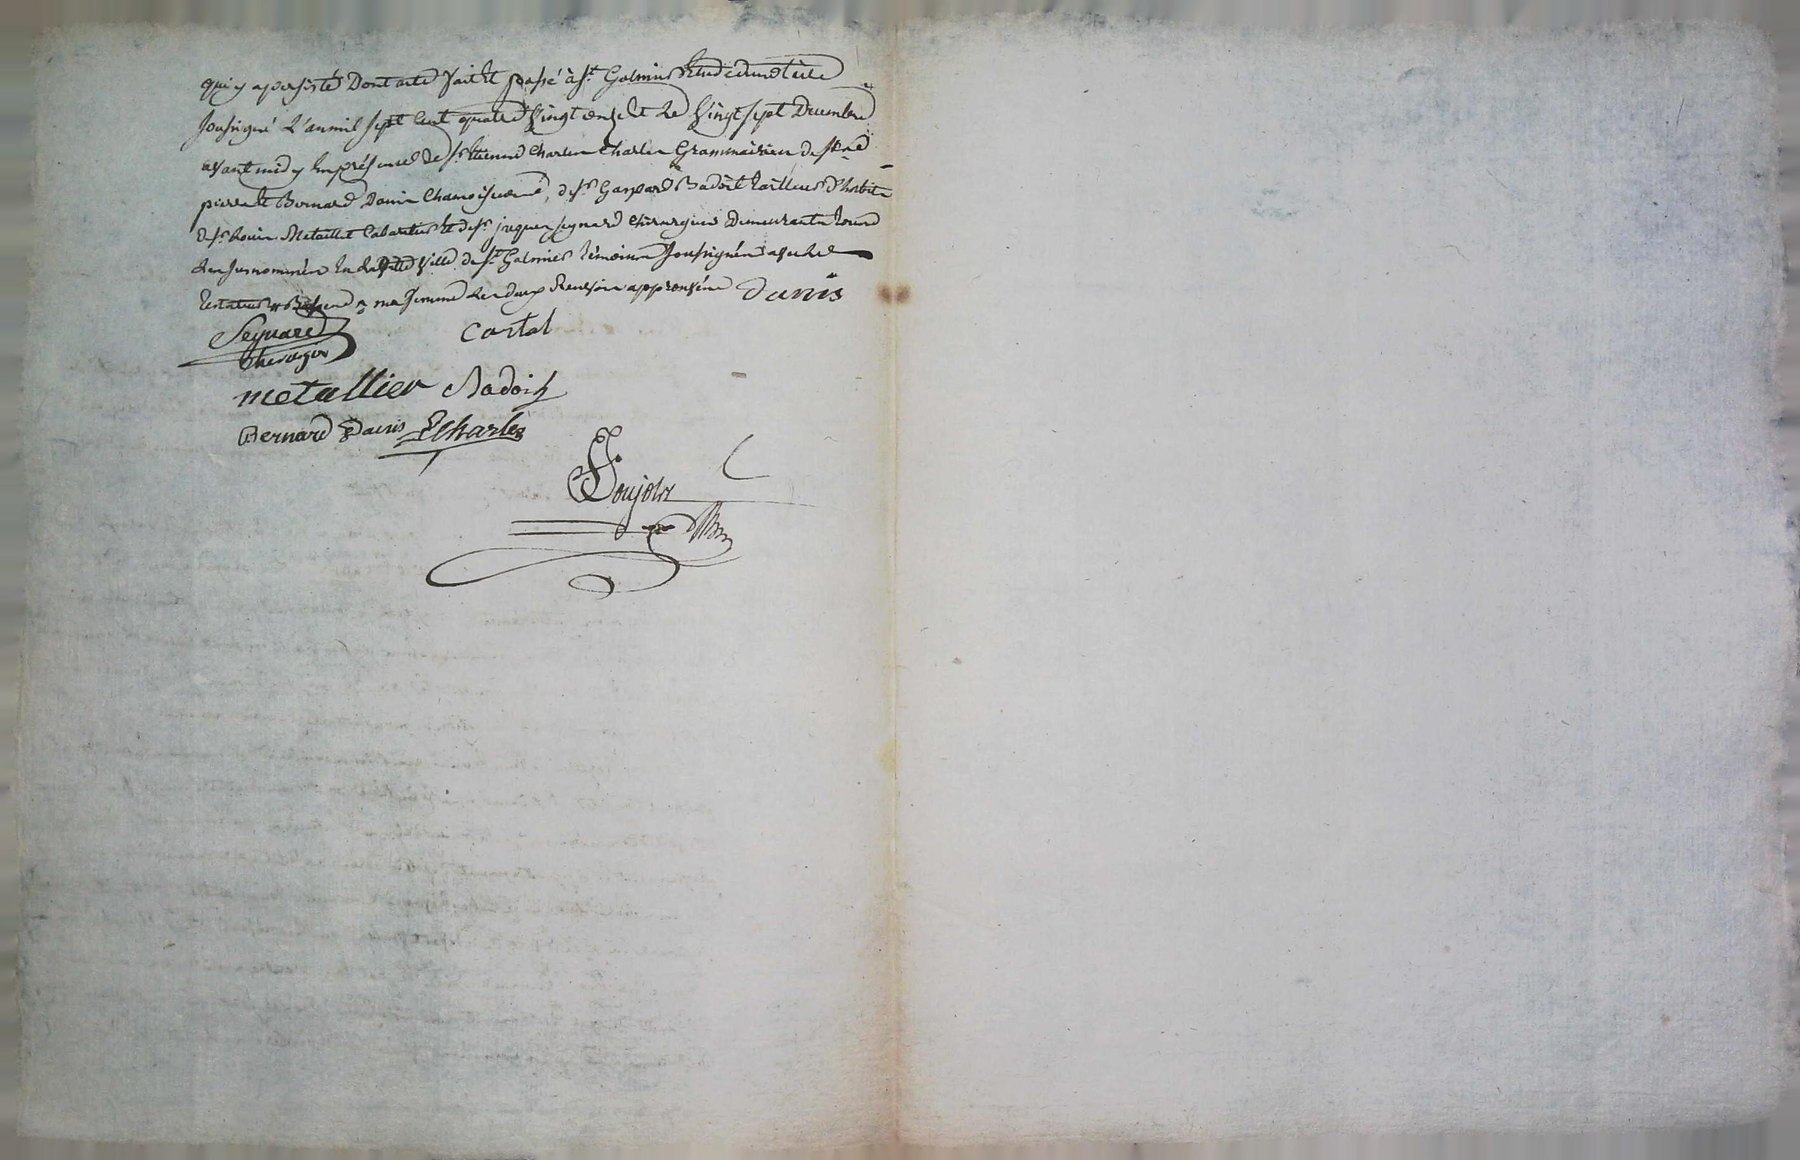 qui y a persisté Dont acte fait et passé à St Galmier Etude du no.re
soussigné L'an mil sept cent quatre vingt onze et Le vingt sept Decembre
avant midy En présence de Sr Etienne Charles Grammairien de Srs
pierre et Bernard Danis Chamoiseurs, de Sr Gaspard Badoit tailleur d'habits
de Sr Louis Metaillet Cabaretier et de Sr jaques seynard Chirurgien Demeurants tous
Les susnommés En La Ville de St Galmier témoins soussignés avec Le
testateur ma femme Les deux Renvois approuvés Danis
Seynard
Chirurgien
costal
metallier Badoit
Bernard Danis E Charles
Poujols